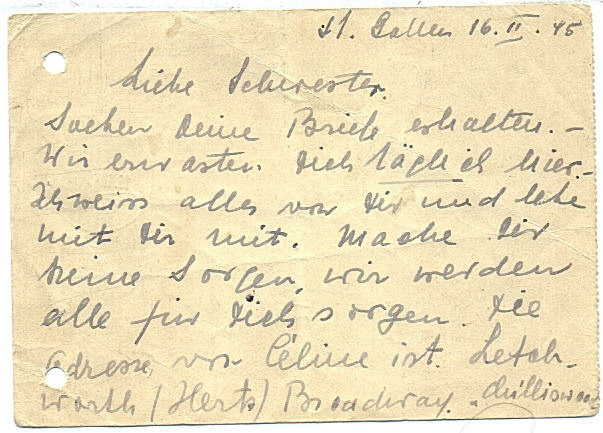 St. Gallen 16. II. 45
Liebe Schwester.
Soeben Deine Briefe erhalten. –
Wir erwarten Dich täglich hier. –
Ich weiss alles von Dir und lebe
mit Dir mit. Mache Dir
keine Sorgen, wir werden
alle für Dich sorgen. Die
Adresse von Céline ist. Letch-
worth (Herts) Broadway.